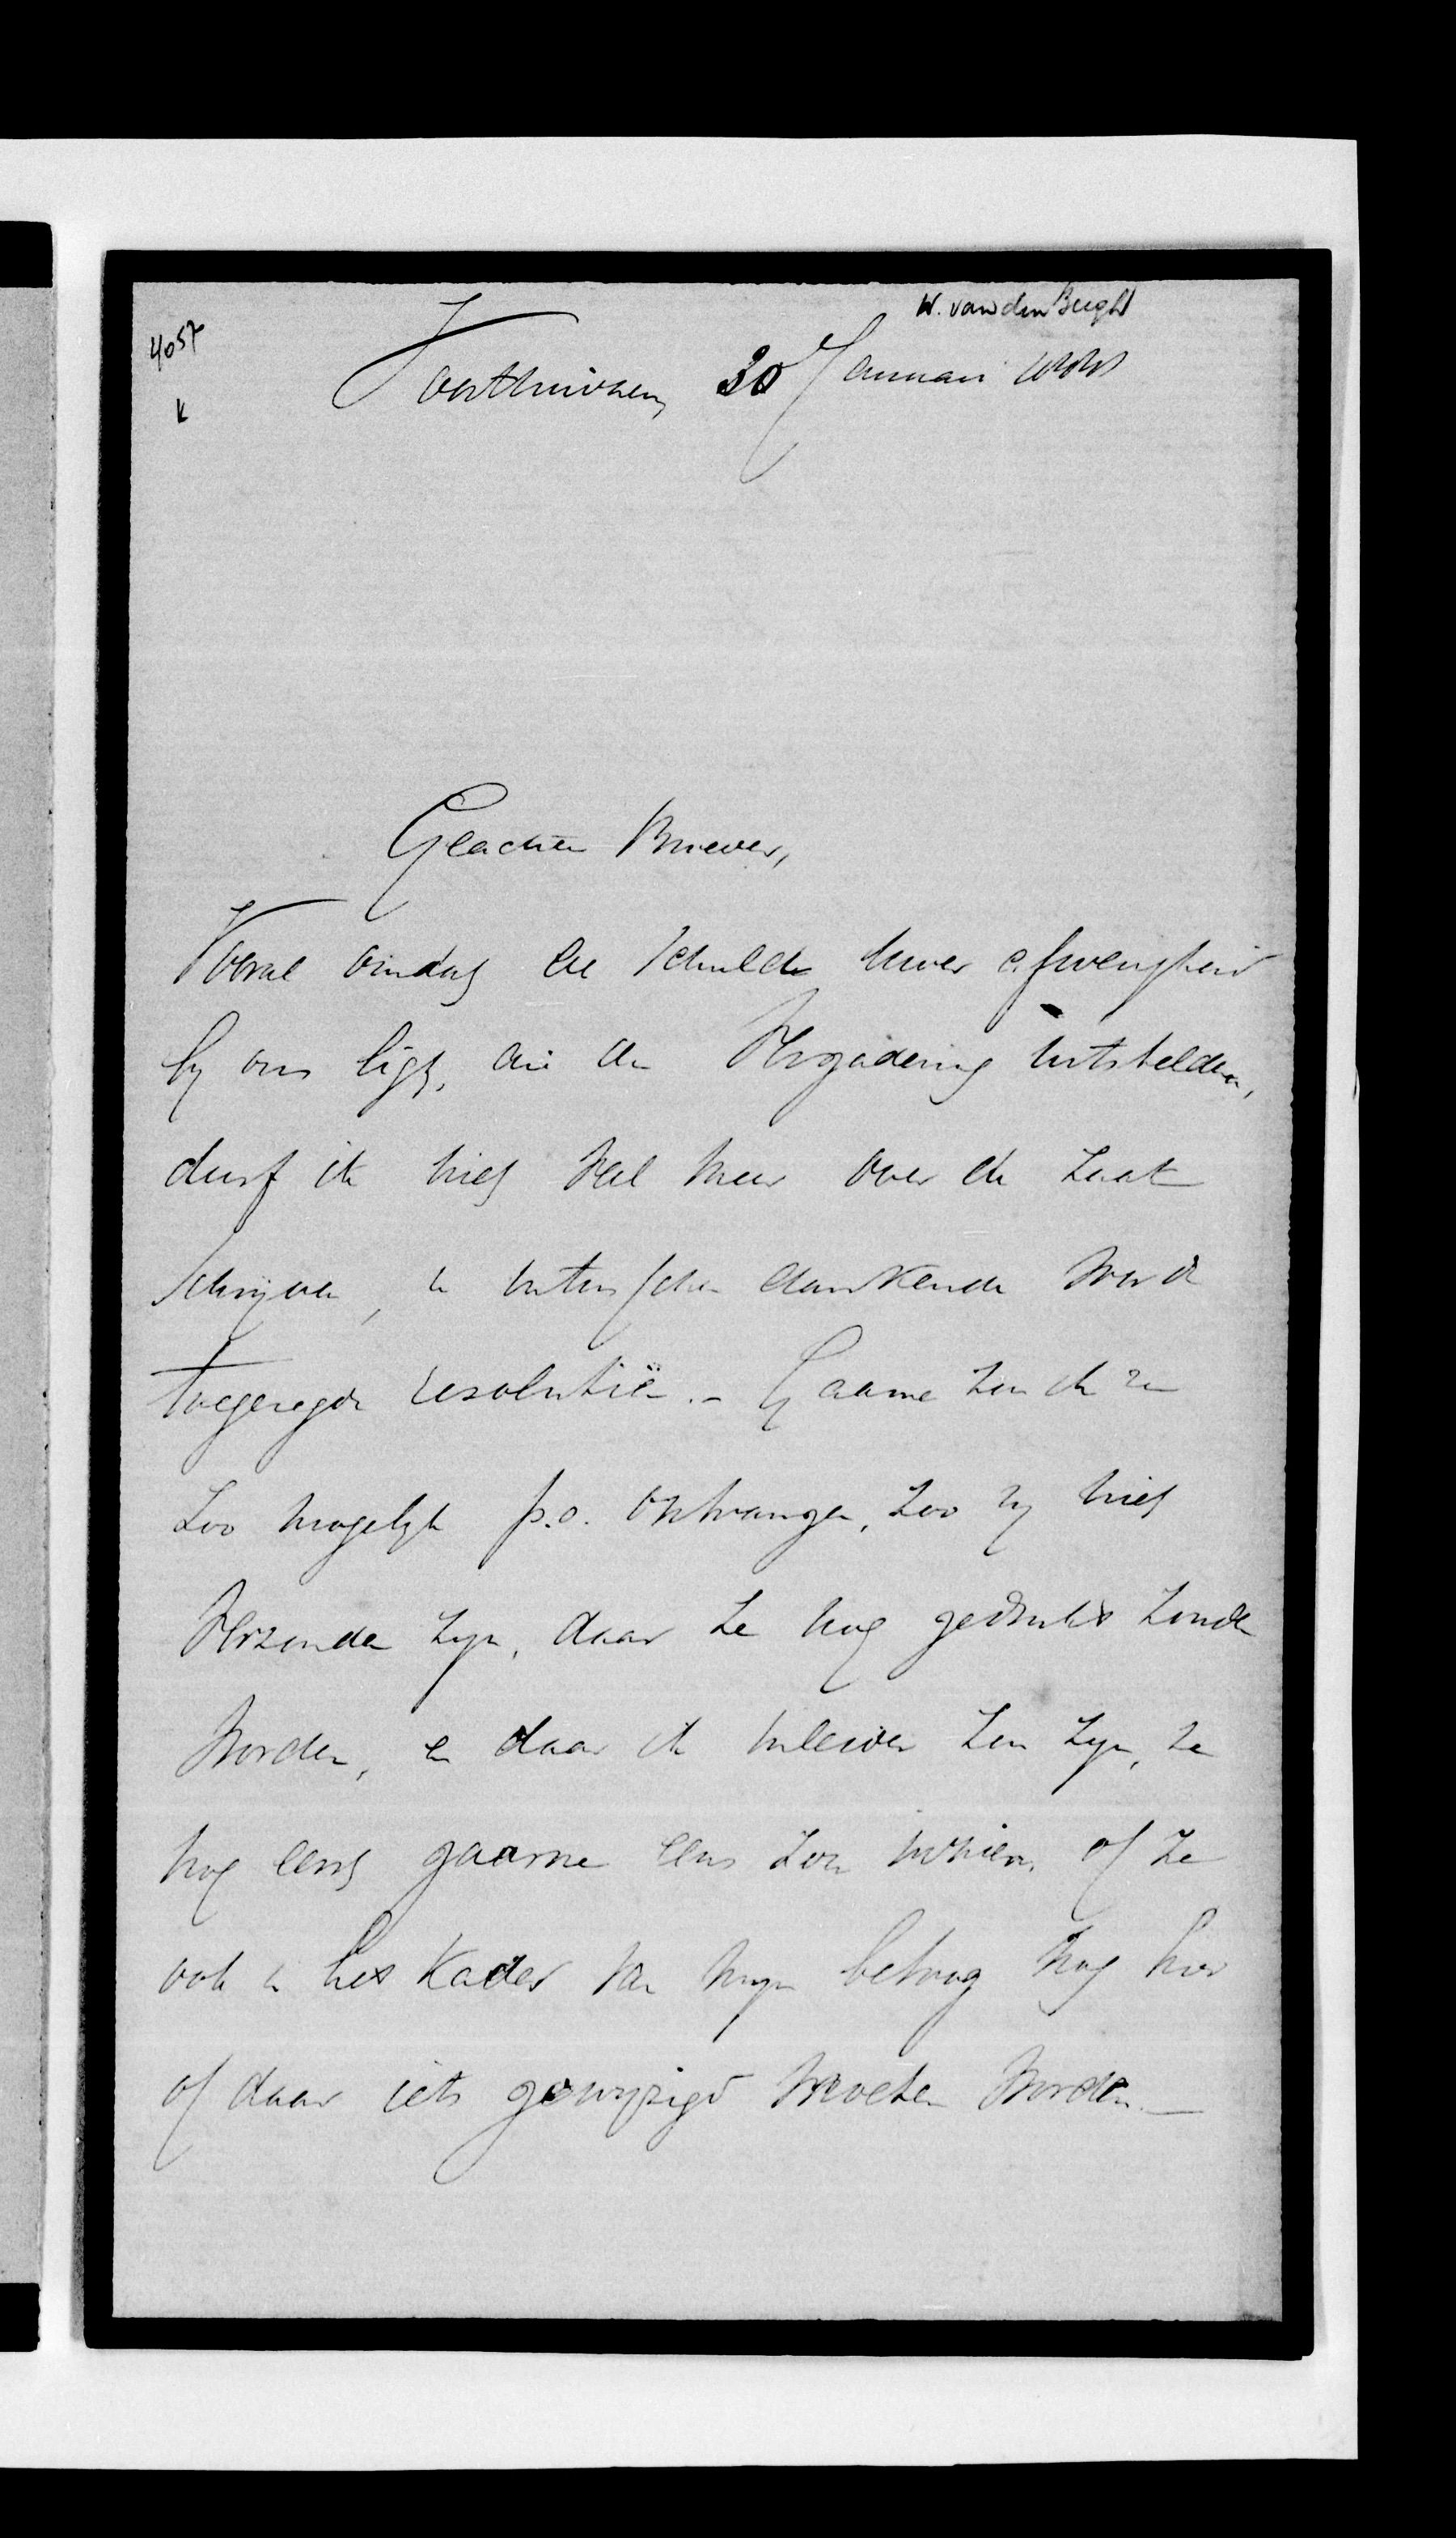 W. van den Bergh
4057
k
Voorthuizen, 30 Januari 1888
Geachte Broeder,
Vooral omdat de schuld Uwer afwezigheid
by ons ligt, die de Vergadering uitstelden,
durf ik niet veel meer over de zaak
schrijven, u intusschen dankende voor de
toegezegde resolutiën. - Gaarne zou ik ze
zoo mogelyk p.o. ontvangen, zoo zy niet
verzonden zyn, daar ze nog gedrukt zouden
worden, en daar ik zou zyn, ze
nog eerst gaarne eens zou inzien, of ze
ook in het kader van myn betoog nog hier
of daar iets gewyzigd moeten worden. —